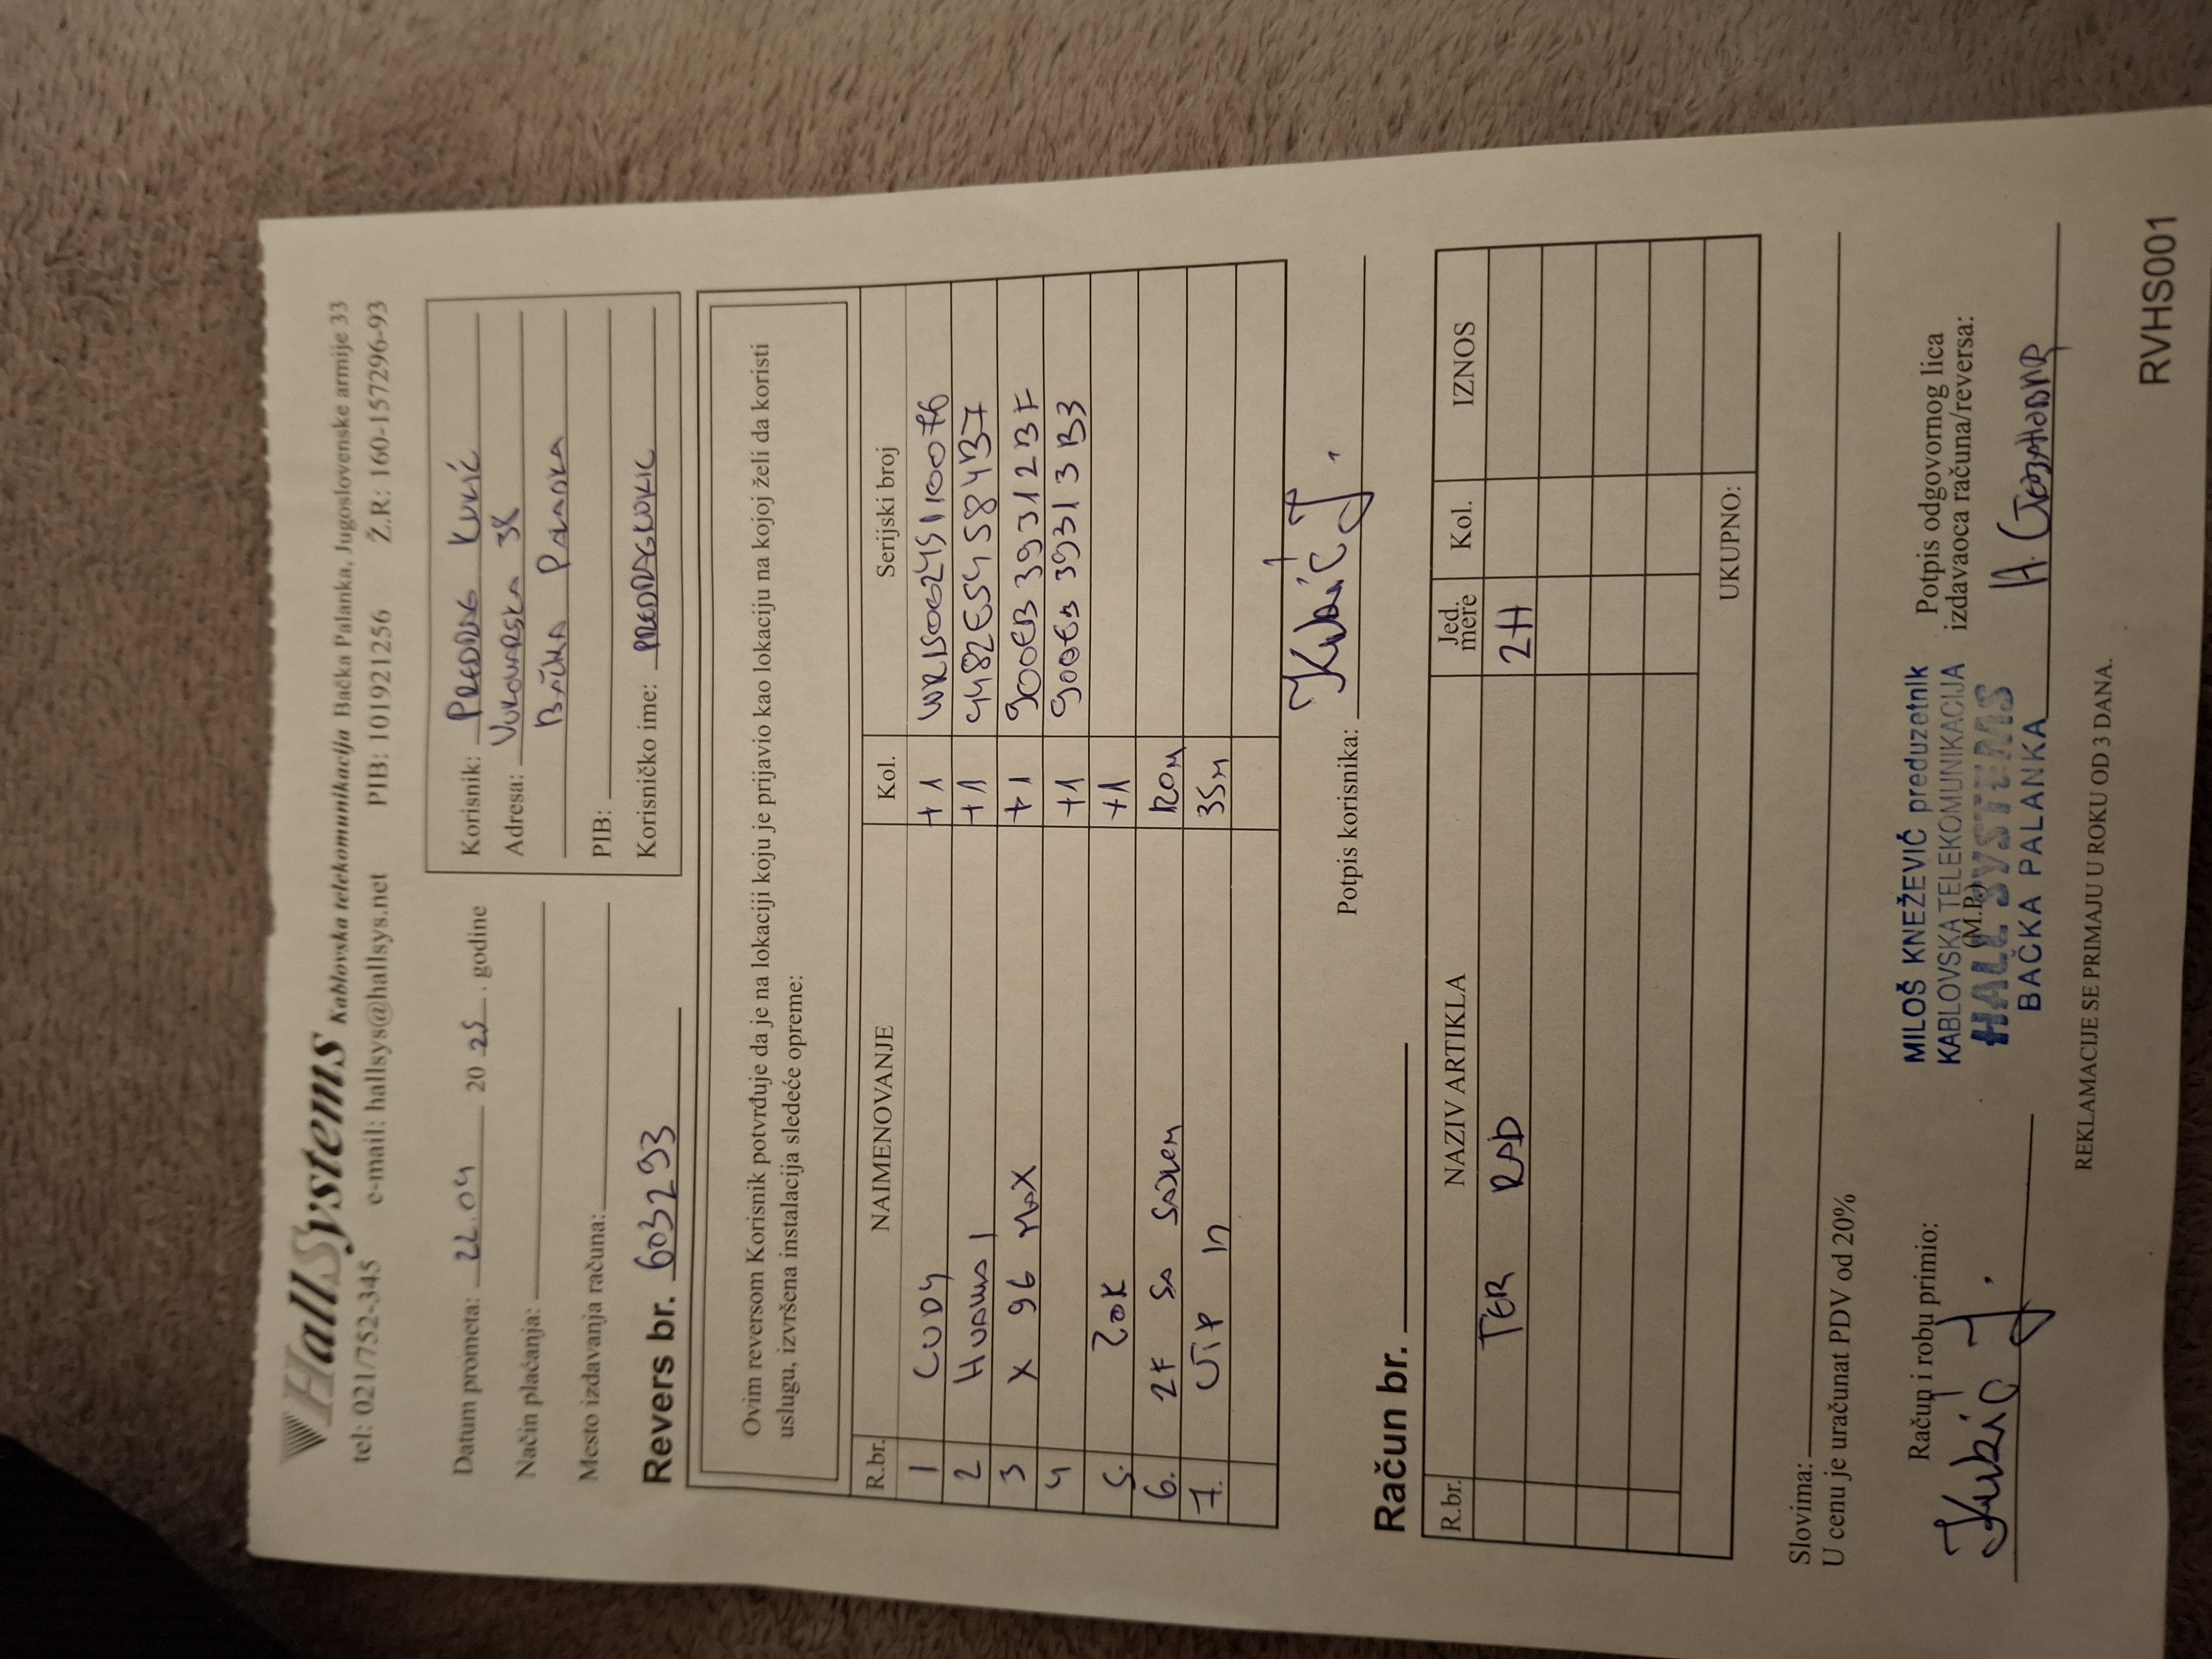 HallSystems Kablovska telekomunikacija Bačka Palanka, Jugoslovenske armije 33
tel: 021/752-345 e-mail: hallsys@hallsys.net PIB: 101921256 Ž.R: 160-157296-93
Datum prometa: 22.04 20 25. godine
Način plaćanja:
Mesto izdavanja računa:
Revers br. 603293
Korisnik: PREDRAG KUKIĆ
Adresa: VUKOVARSKA 38
BAČKA PALANKA
PIB:
Korisničko ime: PREDRAGKUKIC
Ovim reversom Korisnik potvrđuje da je na lokaciji koju je prijavio kao lokaciju na kojoj želi da koristi
uslugu, izvršena instalacija sledeće opreme:
R.br. NAIMENOVANJE Kol. Serijski broj
1 CUDY +1
2 +1 4482E54584B7
3 X 96 MAX +1 900EB39312BF
4 +1 900EB39313B3
5. ZOK +1
6. 2F SA SAJLOM 120M
7. UTP 35M
Potpis korisnika: Kukić J.
Račun br.
R.br. NAZIV ARTIKLA Jed. mere Kol. IZNOS
TER RAD 2H
UKUPNO:
Slovima:
U cenu je uračunat PDV od 20%
Račun i robu primio:
Kukić J.
(M.P.)
MILOŠ KNEŽEVIĆ preduzetnik
KABLOVSKA TELEKOMUNIKACIJA
HALL SYSTEMS
BAČKA PALANKA
Potpis odgovornog lica
izdavaoca računa/reversa:
REKLAMACIJE SE PRIMAJU U ROKU OD 3 DANA.
RVHS001